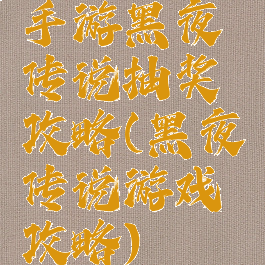 手游黑夜
传说抽奖
攻略(黑夜
传说游戏
攻略)